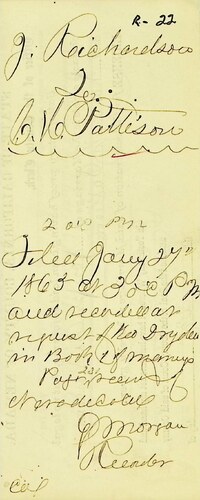 R - 22
J. Richardson
To
Pattison
2 o'c P.M.
Filed Jany 27th
1863 at 2 o'c P.M
and recorded at
request of Geo Dryden
in Book of
Nevada
Morgan
Recorder